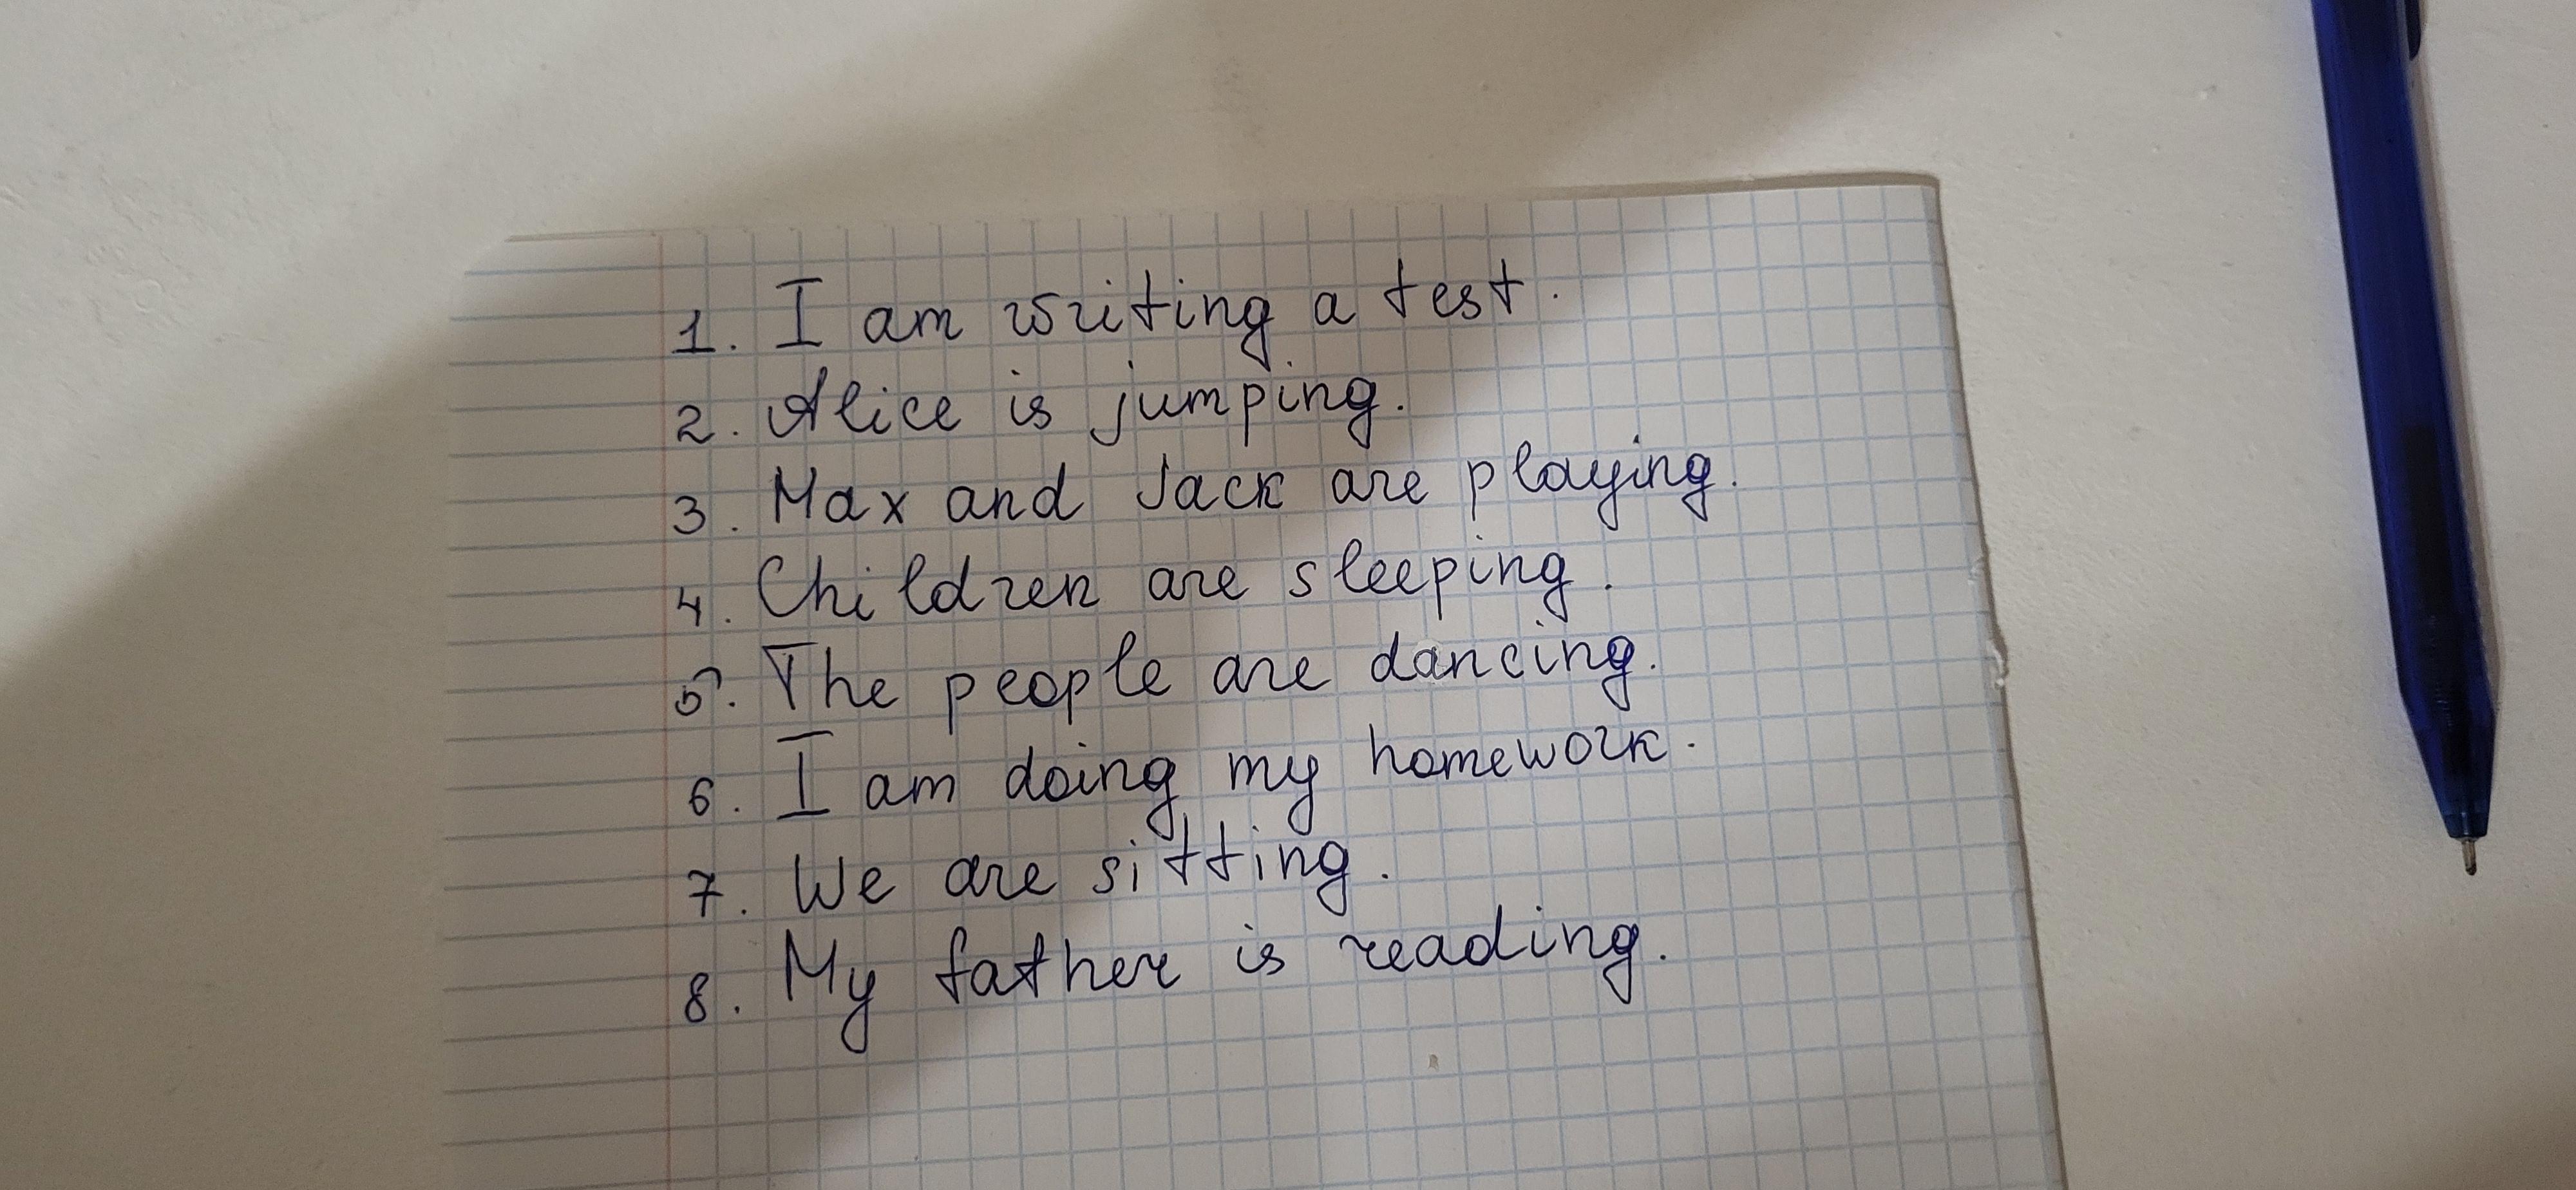 1. I am writing a test.
2. Alice is jumping.
3. Max and Jack are playing.
4. Children are sleeping.
5. The people are dancing.
6. I am doing my homework.
7. We are sitting.
8. My father is reading.